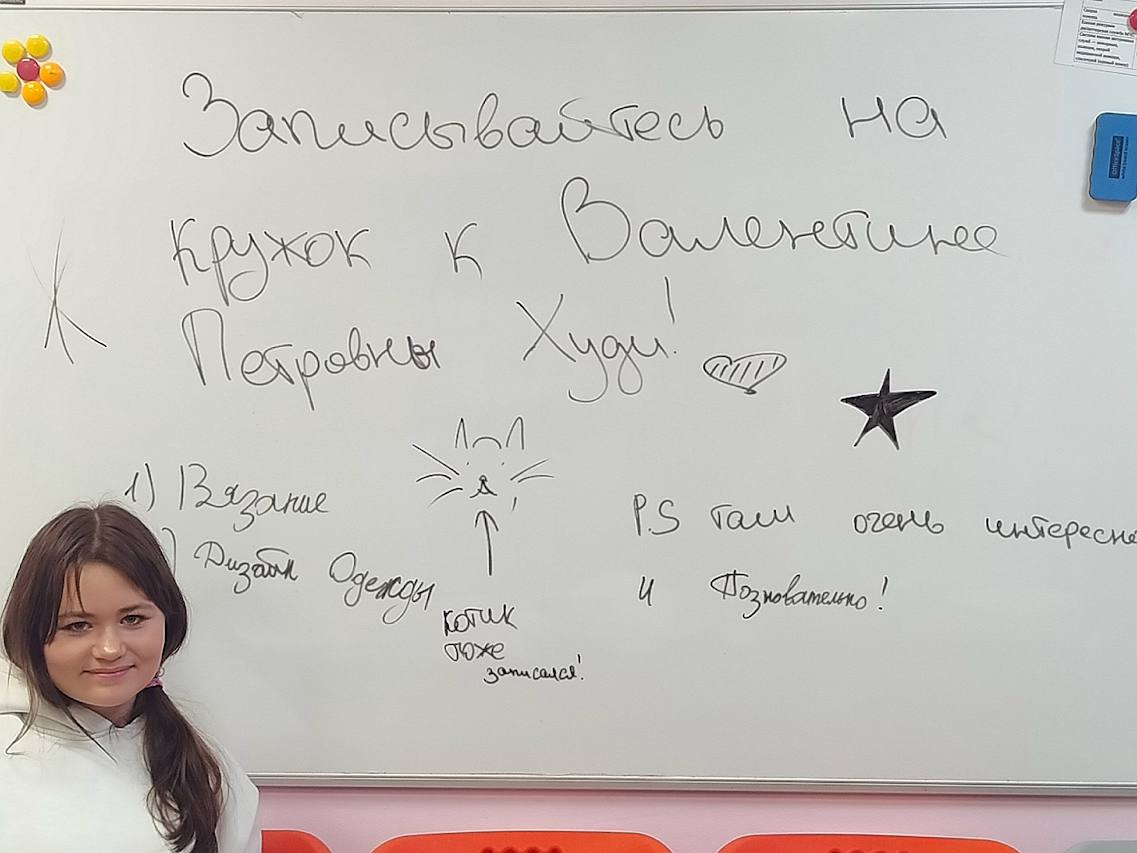 Записывайтесь на
кружок к Валентине
Петровны Худи!
1) Вязание
) Дизайн Одежды
котик
тоже
записался!
P.S там очень интересно
и Позновательно!
OfficeSpace